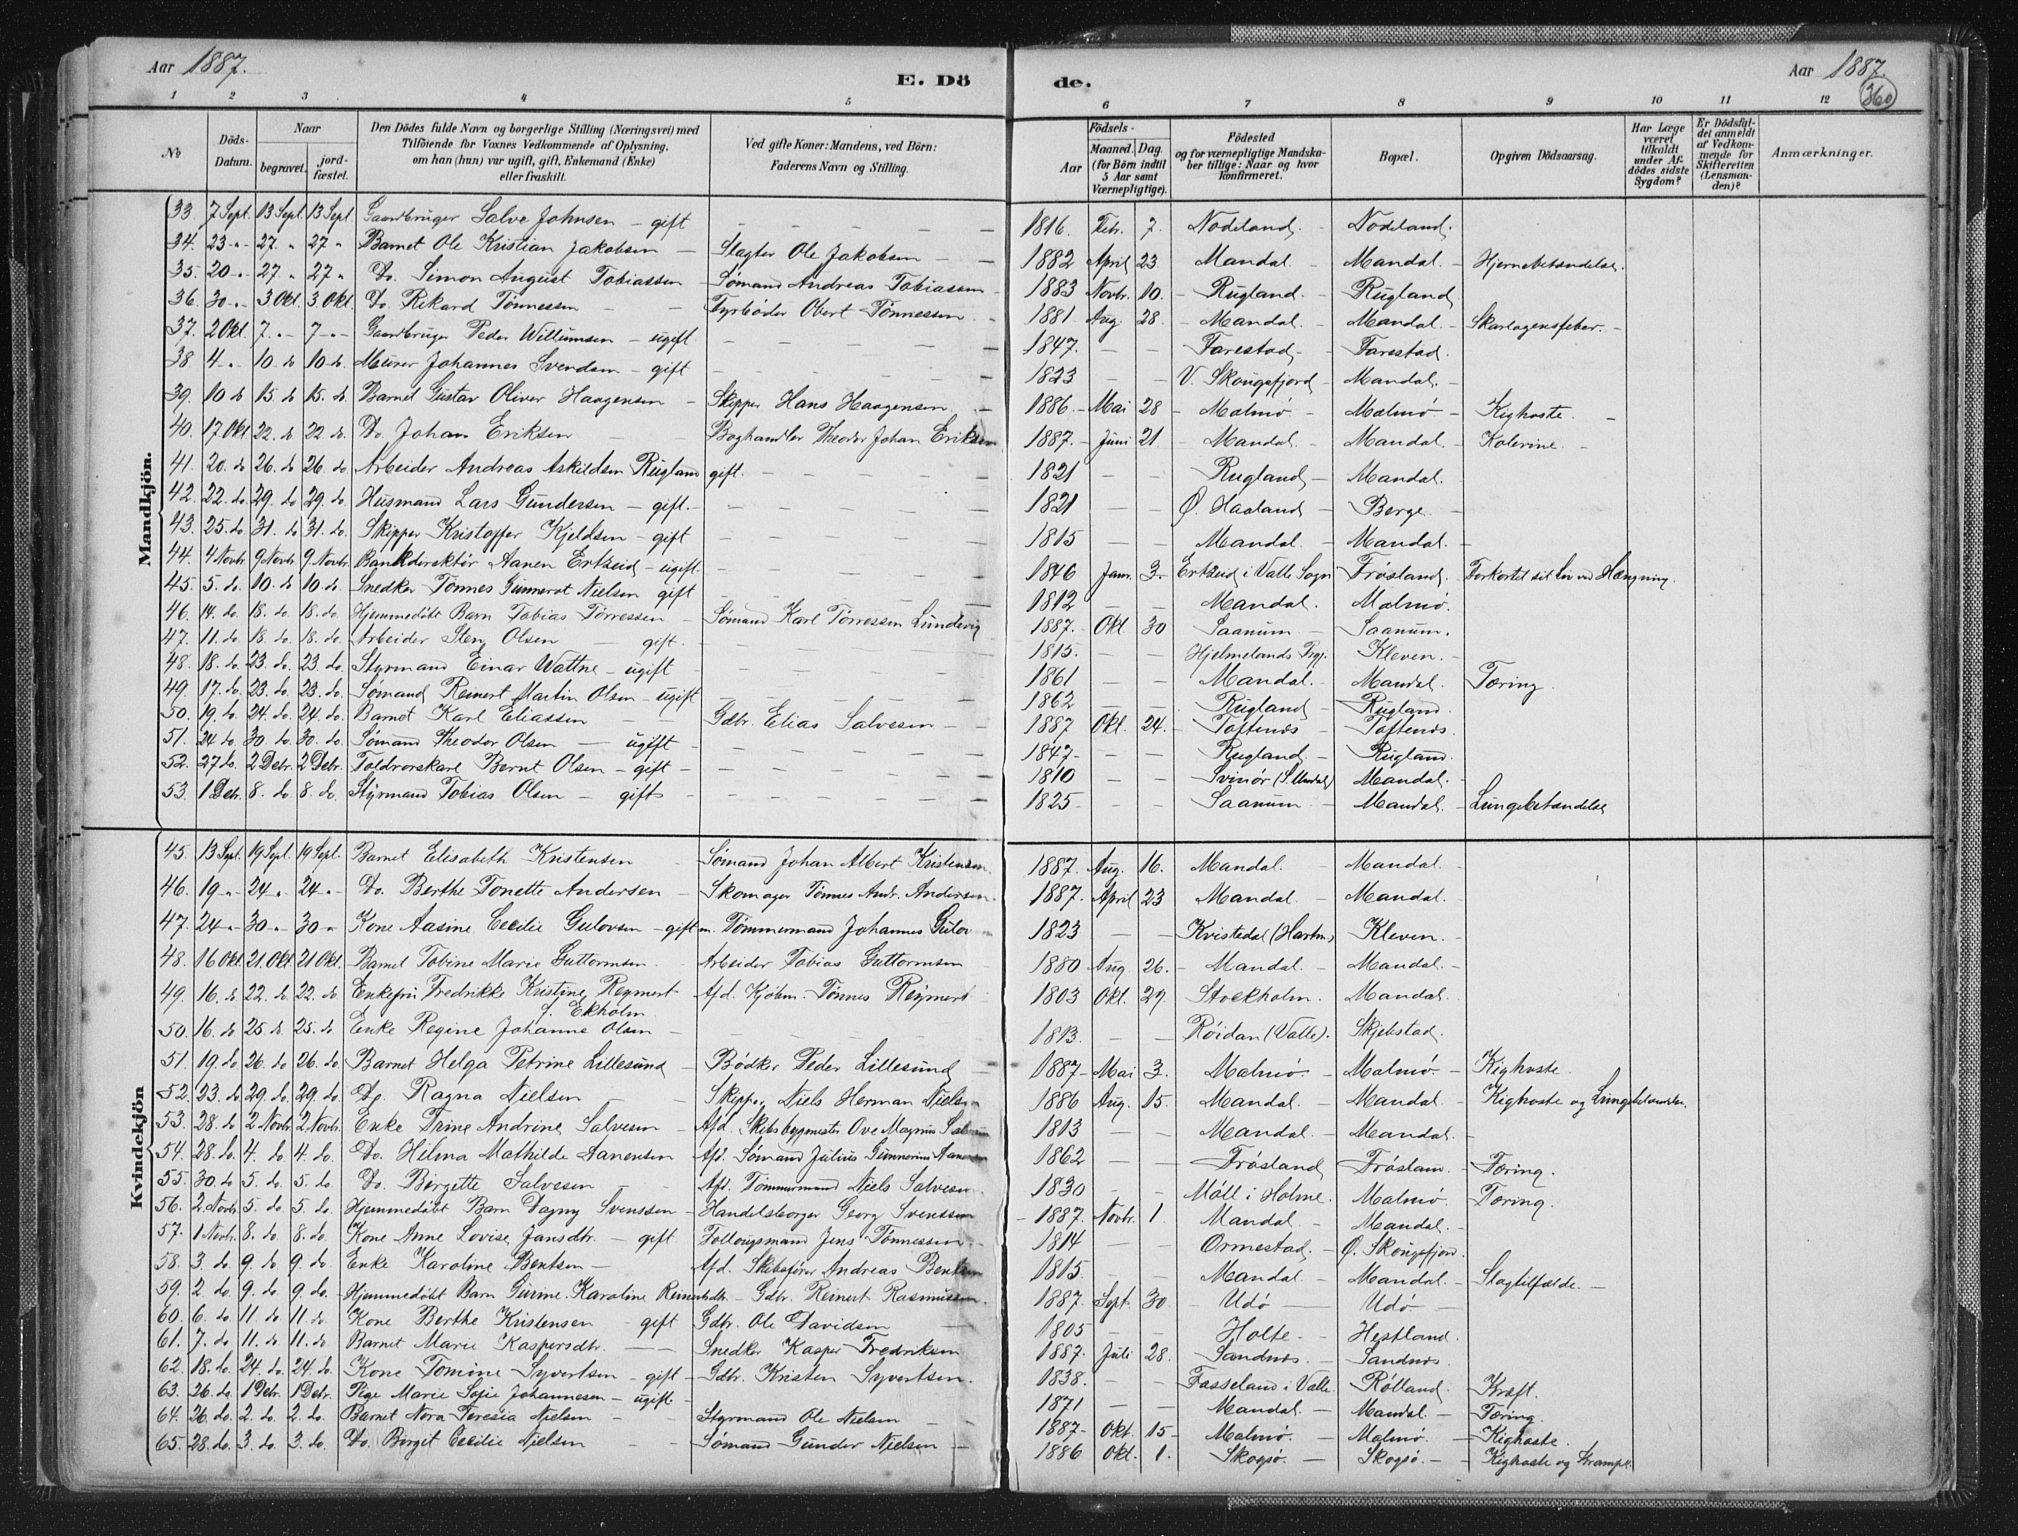 Aar 1887. E. Dö de. Aar 1887.
360
1 2 3 4 5 6 7 8 9 10 11 12
No Döds-Datum. Naar begravet. jord-fæstet. Den Dödes fulde Navn og borgerlige Stilling (Næringsvei) med Tilföiende for Voxnes Vedkommende af Oplysning, om han (hun) var ugift, gift, Enkemand (Enke) eller fraskilt. Ved gifte Koner: Mandens, ved Börn: Faderens Navn og Stilling. Födsels- Aar Maaned. Dag. (for Börn indtil 5 Aar samt Værnepligtige). Födested og for værnepligtige Mandskaber tillige: Naar og hvor konfirmeret. Bopæl. Opgiven Dödsaarsag. Har Læge været tilkaldt under Afdödes sidste Sygdom? Er Dödsfaldet anmeldt af Vedkommende for Skifteretten (Lensmanden)? Anmærkninger.
Mandkjön.
33. 7 Sept. 13 Sept 13 Sept. Gaardbruger Salve Johnsen – gift – 1816. Febr. 7. Nodeland. – Nodeland.
34. 23 -"- 27. " 27 " Barnet Ole Kristian Jakobsen – Slagter Ole Jakobsen – 1882 April 23 Mandal – Mandal. – Hjernebetændelse.
35. 20 -"- 27 " 27 " Do. Simon August Tobiassen – Sømand Andreas Tobiassen – 1883 Novbr. 10. – Rugland. – Rugland.
36. 30 -"- 3 Okt. 3 Okt. Do. Rikard Tønnessen – Fyrbøder Obert Tønnessen. 1881 Aug 28. – Mandal. – Mandal. – Skarlagensfeber. –
37. 2 Okt. 7. -"- 7 -"- Gaardbruger Peder Willumsen – ugift. 1847. – – Farestad, – Farestad.
38 4 -"- 10 do 10 do. Murer Johannes Svendsen – gift 1823 – – V. Skougsfjord – Mandal. –
39. 10 do 15 do 15. do. Barnet Gustav Oliver Haagensen – Skipper Hans Haagensen. – 1886. – Mai 28 – Malmø. – Malmø – Kighoste. –
40. 17 Okt. 22. do 22 do. Do. Johan Eriksen – Boghandler Theodor Johan Eriksen 1887. – Juni 21. – Mandal. – Mandal. – Kolerine. –
41. 20. do 26. do 26. do. Arbeider Andreas Askildsen Rugland gift. 1821 – – Rugland, – Mandal.
42. 22. do. 29. do 29. do. Husmand Lars Gundersen – gift. – 1821 – – Ø. Haaland, – Berge. –
43. 25. do 31. do 31. do. Skipper Kristoffer Kjeldsen – gift 1815 – – Mandal. – Mandal. –
44. 4 Novbr. 9 Novbr. 9 Novbr. Bankdirektør Aanen Ertzeid – ugift 1846 Janr. 3. – Ertzeid i Valle Sogn Frøsland. – Forkortet sit Liv ved Hængning.
45. 5. do. 10 do. 10 do. Snedker Tønnes Gunnerot Nielsen gift 1812 – – Mandal. Malmø.
46. 14. do. 18. do. 18. do. Hjemmedøbt Barn Tobias Tørressen – Sømand Karl Tørressen Lundevig 1887. – Okt. 30 – Saanum – Saanum.
47. 11. do. 18. do. 18. do. Arbeider Sten Olsen – gift. 1815. – – Hjelmelands Prgj. – Kleven. –
48. 18. do. 23. do. 23. do. Styrmand Einar Wattne – ugift 1861 – – Mandal. – Mandal. Tæring.
49. 17. do. 23. do. 23. do. Sømand Reinert Martin Olsen – ugift 1862 – – Rugland – Rugland.
50. 19. do. 24. do. 24. do. Barnet Karl Eliassen – Gdbr. Elias Salvesen – 1887 Okt. 24. – Toftenes – Toftenes.
51. 24 do. 30. do. 30. do. Sømand Theodor Olsen – ugift – 1847. – – Rugland, – Rugland.
52. 27 do. 2 Debr. 2 Debr. Toldrorskarl Bernt Olsen – gift – 1810 – – Svinør (S. Undal) Mandal.
53. 1 Debr. 8. do. 8. do. Styrmand Tobias Olsen – gift – 1825 – – – Saanum – Mandal. – Lungebetændelse
Kvindekjön
45. 13 Sept. 19 Sept. 19 Sept. Barnet Elisabeth Kristensen – Sømand Johan Albert Kristensen 1887. Aug. 16. – Mandal. – Mandal. –
46. 19 -"- 24 -"- 24 -"- Do. Berthe Tonette Andersen – Skomager Tønnes Andr. Andersen. 1887. April 23 Mandal. – Mandal.
47. 24 -"- 30 -"- 30 -"- Kone Aasine Cecilie Gulovsen – gift m. Tømmermand Johannes Gulov 1823 – – Kvistedal (Hartm.) Kleven. –
48. 16 Okt. 21. Okt 21 Okt. Barnet Tobine Marie Guttormsen. Arbeider Tobias Guttormsen 1880 Aug. 26. – Mandal. – Mandal.
49. 16. do 22. do 22. do. Enkefru Fredrikke Kristine Reymert f. Ekholm Afd. Kjøbm. Tønnes Reymert 1803 Okt. 29. Stockholm. – Mandal.
50. 16. do 25 do 25. do Enke Regine Johanne Olsen – 1813. – – Røidan (Valle). – Skjebstad.
51. 19. do 26. do 26. do. Barnet Helga Petrine Lillesund – Bødker Peder Lillesund – 1887 – Mai 3. – Malmø. – Malmø. – Kighoste.
52. 23. do. 29. do. 29. do. Do. Ragna Nielsen – Skipper Niels Herman Nielsen 1886 Aug. 15. – Mandal. – Mandal. – Kighoste og Lungebetændelse.
53. 28. do 2 Novbr. 2 Novbr. Enke Trine Andrine Salvesen – Afd. Skibsbygmester Ove Magnus Salvesen 1813 – – Mandal. – Mandal. –
54. 28. do. 4. do. 4. do. Do. Hilma Mathilde Aanensen Afd. Sømand Julius Gunnerius Aanensen 1862 – – Frøsland, – Frøslam. – Tæring.
55. 30. do 5. do. 5. do. Do. Birgette Salvesen – Afd. Tømmermand Niels Salvesen. 1830 – – Møll i Holme. – Malmø. – Tæring.
56. 2. Novbr. 5. do. 5. do. Hjemmedøbt Barn Dagny Svenssen – Handelsborger Georg Svenssen – 1887. Novbr. 1 – Mandal – Mandal.
57. 1 Novbr. 8. do. 8. do. Kone Anne Lovise Jansdtr. – gift Follougsmand Jens Tønnessen. 1814 – – Ormestad, – Ø. Skougsfjord.
58. 3. do. 9. do. 9. do. Enke Karoline Bentsen – Afd. Skibsfører Andreas Bentsen 1815. – – Mandal. – Mandal. – Slagtilfælde. –
59. 2 do. 9. do. 9. do. Hjemmedøbt Barn Gurine Karoline Reinertsdtr. – Gdbr. Reinert Rasmussen. 1887. Sept. 30. – Udø – Udø –
60. 6. do. 11. do 11. do. Kone Berthe Kristensen – gift Gdbr. Ole Davidsen – 1805 – – Holte. – Hestland.
61. 7. do. 11. do 11. do. Barnet Marie Kaspersdtr. – – Snedker Kasper Fredriksen 1887. Juli 28. – Sandnes. – Sandnes.
62. 18. do. 24. do. 24. do. Kone Tomine Syvertsen – gift – Gdbr. Kristen Syvertsen. 1838. – – Fasseland i Valle Rølland. – Kræft.
63. 26. do. 1 Debr. 1 Debr. Pige Marie Sofie Johannesen – ugift – 1871 – – Mandal. – Mandal. – Tæring.
64. 26. do. 2. do. 2. do. Barnet Nora Teresia Nielsen – Styrmand Ole Nielsen – 1887 – Okt. 15 – Malmø. – Malmø. – Kighoste.
65. 28. do. 3. do. 3. do. Do. Birgit Cecilie Nielsen – Sømand Gunder Nielsen – 1886 Okt. 1. – Skogsø. – Skogsø. – – Kighoste og Krampe.